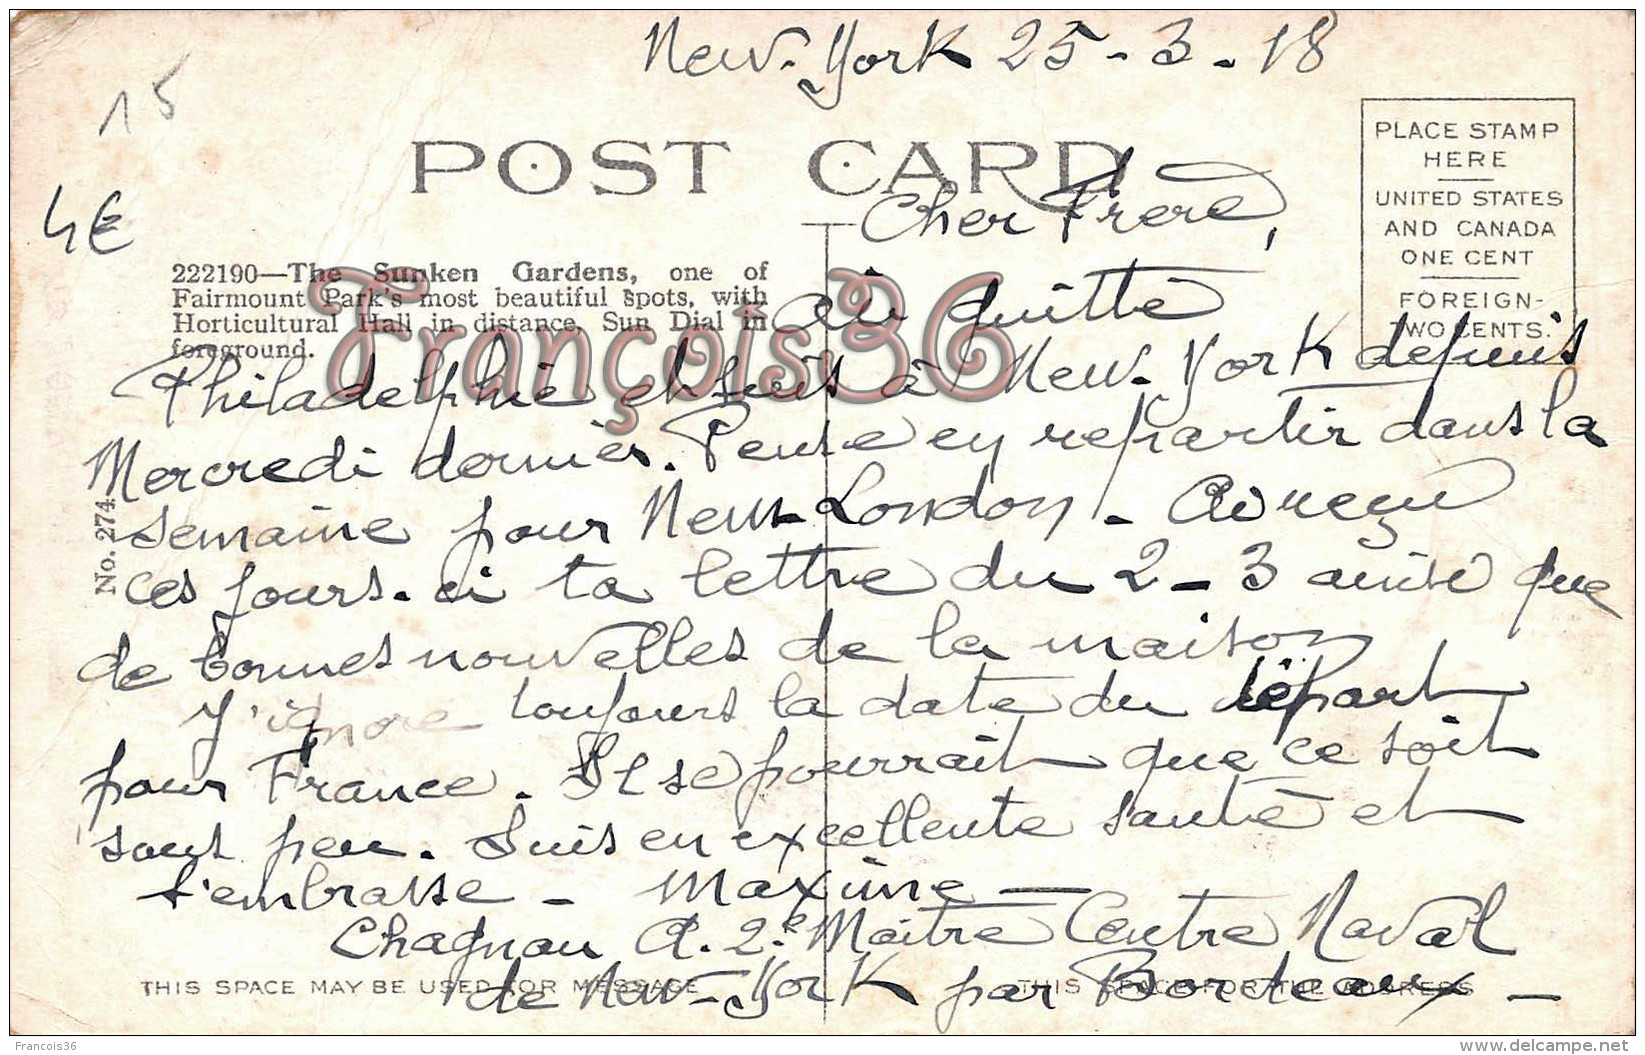 New-York 25-3-18
15
4€
POST CARD
PLACE STAMP
HERE
UNITED STATES
AND CANADA
ONE CENT
FOREIGN-
TWO CENTS.
222190—The Sunken Gardens, one of
Fairmount Park's most beautiful spots, with
Horticultural Hall in distance, Sun Dial in
foreground.
No. 274
Cher Frère,
Ai quitté
Philadelphie et suis à New-York depuis
Mercredi dernier. Pense en repartir dans la
semaine pour New-London - Ai reçu
ces jours-ci ta lettre du 2-3 ainsi que
de bonnes nouvelles de la maison
J'ignore toujours la date du départ
pour France. Il se pourrait que ce soit
sous peu. Suis en excellente santé et
t'embrasse - Maxime -
Chagnau A. 2e Maître Centre Naval
de New-York par Bordeaux -
THIS SPACE MAY BE USED FOR MESSAGE
THIS SPACE FOR THE ADDRESS
François36
Francois36
www.delcampe.net